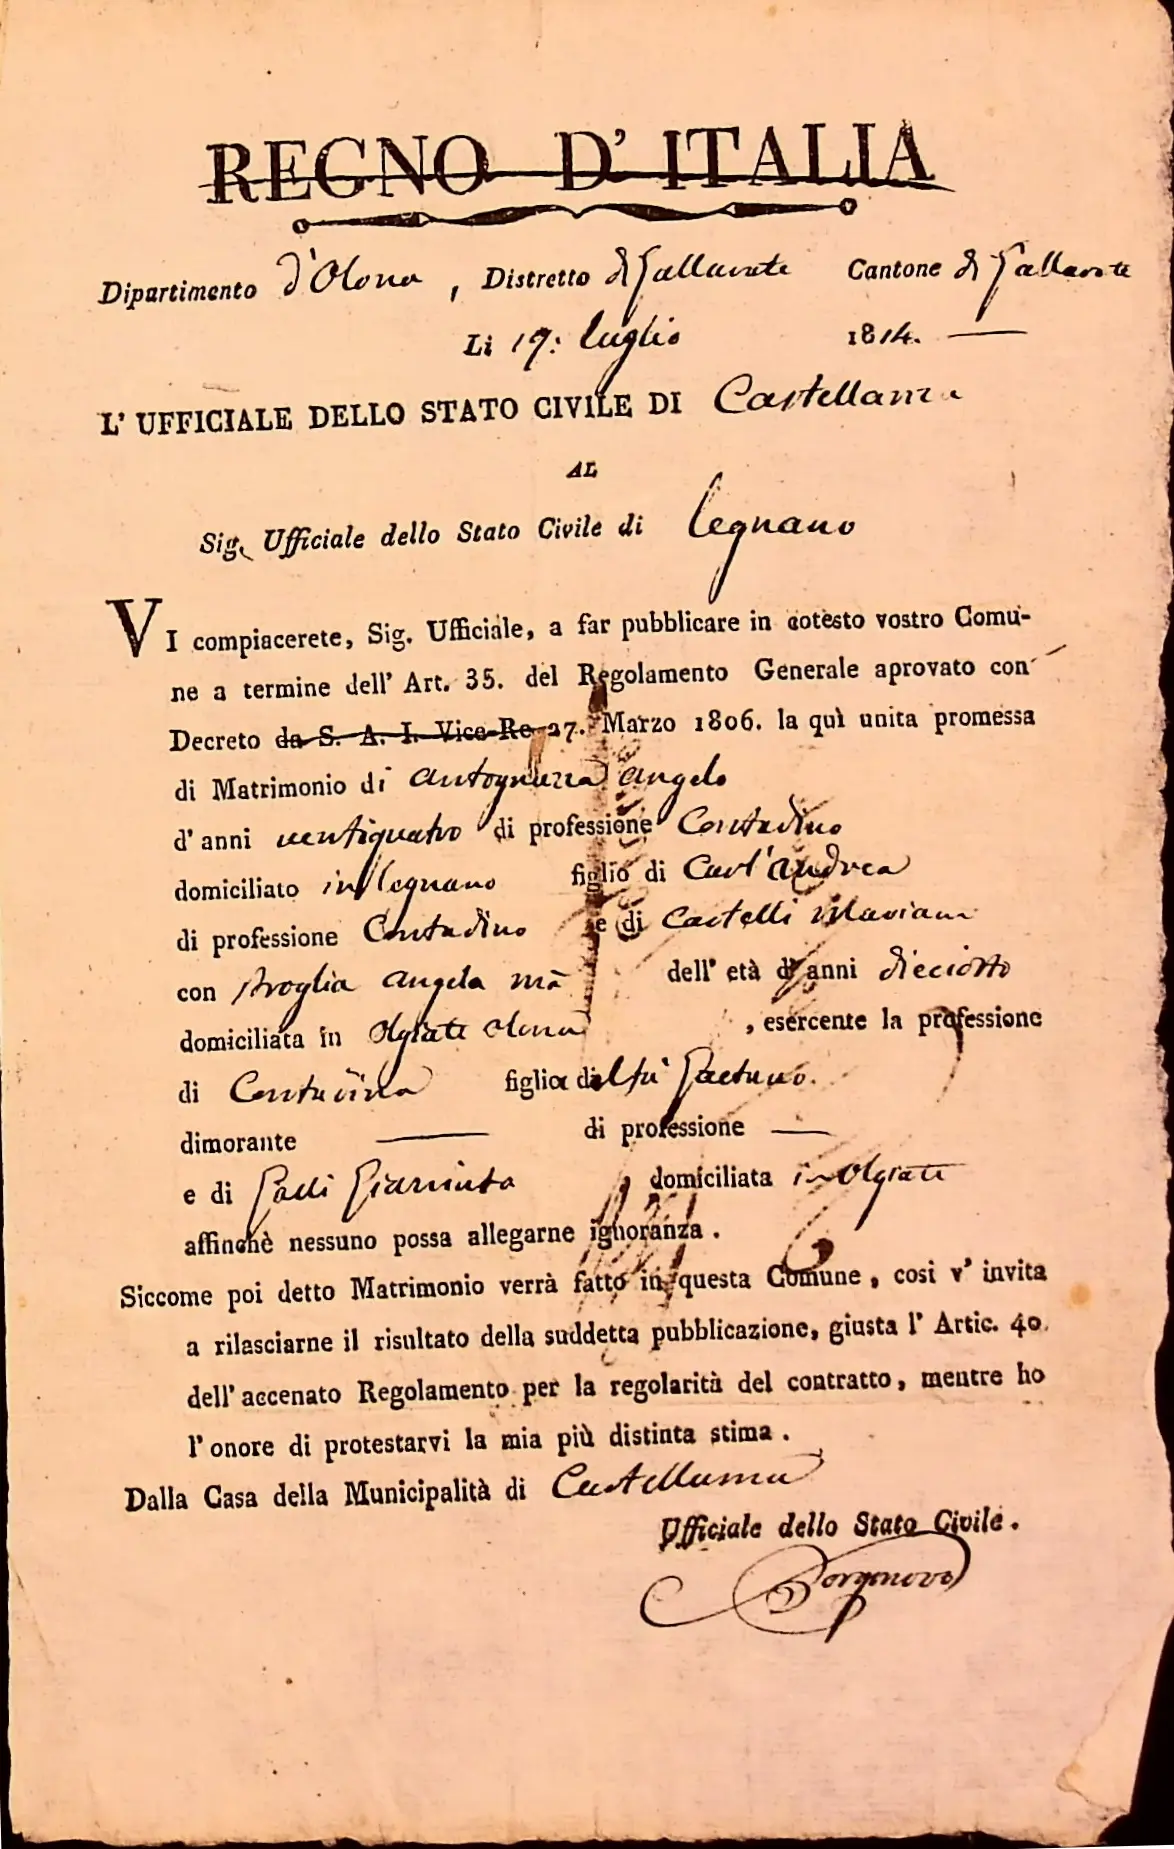 REGNO D' ITALIA
Dipartimento d'Olona, Distretto di Gallarate Cantone di Gallarate
Li 17: luglio 1814.
L' UFFICIALE DELLO STATO CIVILE DI Castellanza
AL
Sig. Ufficiale dello Stato Civile di Legnano
VI compiacerete, Sig. Ufficiale, a far pubblicare in cotesto vostro Comu-
ne a termine dell' Art. 35. del Regolamento Generale aprovato con
Decreto da S. A. I. Vice-Re 27. Marzo 1806. la quì unita promessa
di Matrimonio di Antognazza Angelo
d' anni ventiquatro di professione Contadino
domiciliato in Legnano figlio di Carl'Andrea
di professione Contadino e di Castelli Mariana
con Angela Mª dell' età d' anni dieciotto
domiciliata in Olgiate Olona , esercente la professione
di Contadina figlia di fù Gaetano.
dimorante — di professione —
e di Galli Giacinta domiciliata in Olgiate
affinchè nessuno possa allegarne ignoranza .
Siccome poi detto Matrimonio verrà fatto in questa Comune , cosi v' invita
a rilasciarne il risultato della suddetta pubblicazione, giusta l' Artic. 40.
dell' accenato Regolamento per la regolarità del contratto, mentre ho
l' onore di protestarvi la mia più distinta stima .
Dalla Casa della Municipalità di Castellanza
Ufficiale dello Stato Civile .
Borgonovo